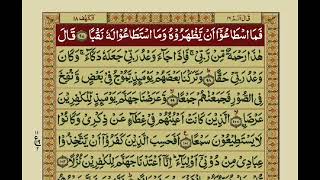 قال الم ١٦
الكهف ١٨
فَمَا اسْطَاعُوْۤا اَنْ يَّظْهَرُوْهُ وَمَا اسْتَطَاعُوْا لَهٗ نَقْبًا ۝٩٧ قَالَ
هٰذَا رَحْمَةٌ مِّنْ رَّبِّيْ ۚ فَاِذَا جَآءَ وَعْدُ رَبِّيْ جَعَلَهٗ دَكَّآءَ ۚ وَكَانَ
وَعْدُ رَبِّيْ حَقًّا ۝٩٨ وَتَرَكْنَا بَعْضَهُمْ يَوْمَئِذٍ يَّمُوْجُ فِيْ بَعْضٍ وَّنُفِخَ
فِي الصُّوْرِ فَجَمَعْنٰهُمْ جَمْعًا ۝٩٩ وَّعَرَضْنَا جَهَنَّمَ يَوْمَئِذٍ لِّلْكٰفِرِيْنَ
عَرْضَا ۝١٠٠ الَّذِيْنَ كَانَتْ اَعْيُنُهُمْ فِيْ غِطَآءٍ عَنْ ذِكْرِيْ وَكَانُوْا
لَا يَسْتَطِيْعُوْنَ سَمْعًا ۝١٠١ اَفَحَسِبَ الَّذِيْنَ كَفَرُوْۤا اَنْ يَّتَّخِذُوْا
عِبَادِيْ مِنْ دُوْنِيْۤ اَوْلِيَآءَ ۚ اِنَّاۤ اَعْتَدْنَا جَهَنَّمَ لِلْكٰفِرِيْنَ نُزُلًا ۝١٠٢